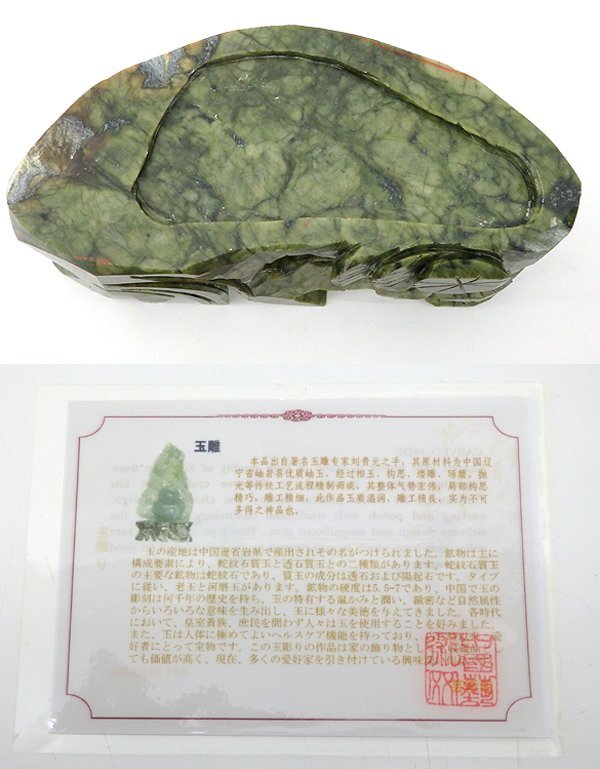 玉雕
本品出自著名玉雕专家刘贵元之手，其原材料为中国辽
宁省岫岩县优质岫玉，经过相玉、构思、琢雕、琢磨、抛
光等传统工艺流程精制而成，其整体气势宏伟，局部构思
精巧，雕工精细。此作品玉质温润，雕工精良，实为不可
多得之神品也。
玉の産地は中国遼省岩県で産出されその名がつけられました。鉱物は主に
構成要素により、蛇紋石質玉と透石質玉との二種類があります。蛇紋石質玉
の主要な鉱物は蛇紋石であり、質玉の成分は透石および陽起石です。タイプ
に従い、老玉と河磨玉があります。鉱物の硬度は5.5-7であり、中国で玉の
彫刻は何千年の歴史を持ち、玉の特有する温かみと潤い、緻密など自然属性
からいろいろな意味を生み出し、玉に様々な美徳を与えてきました。各時代
において、皇室貴族、庶民を問わず人々は玉を使用することを好みました。
また、玉は人体に極めてよいヘルスケア機能を持っており、
好者にとって宝物です。この玉彫りの作品は家の飾り物とし
ても価値が高く、現在、多くの愛好家を引き付けている興味